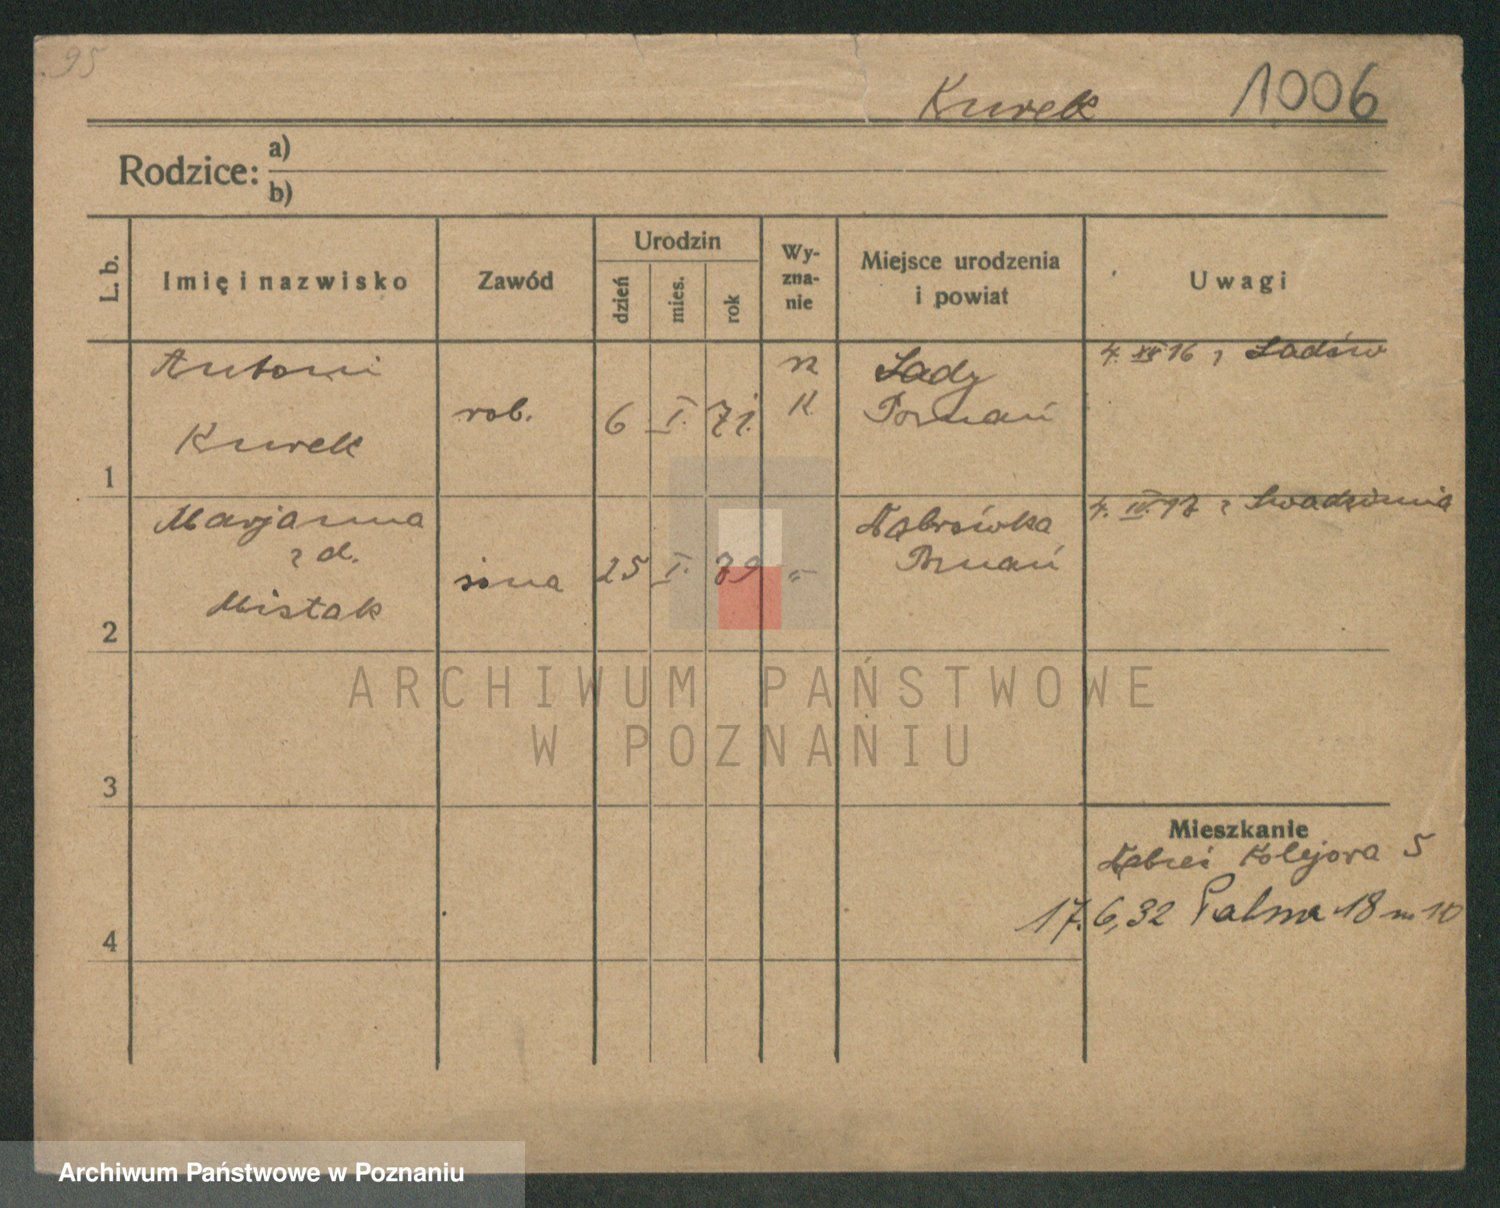 95
Kurek 1006
Rodzice: a)
b)
L. b. Imię i nazwisko Zawód Urodzin dzień mies. rok Wy-zna-nie Miejsce urodzenia i powiat Uwagi
Antoni
Kurek
rob. 6 I. 71. rz K
Sady
Poznań
4. XII 16 z Sadów
1
Marjanna
z d.
Mistak
żona 25 I. 79 -"-
Dąbrówka
Poznań
4. IV. 17 z Swadzimia
2
3
4
Mieszkanie
Kolejowa 5
17.6,32 Palma 18 m 10
ARCHIWUM PAŃSTWOWE
W POZNANIU
Archiwum Państwowe w Poznaniu